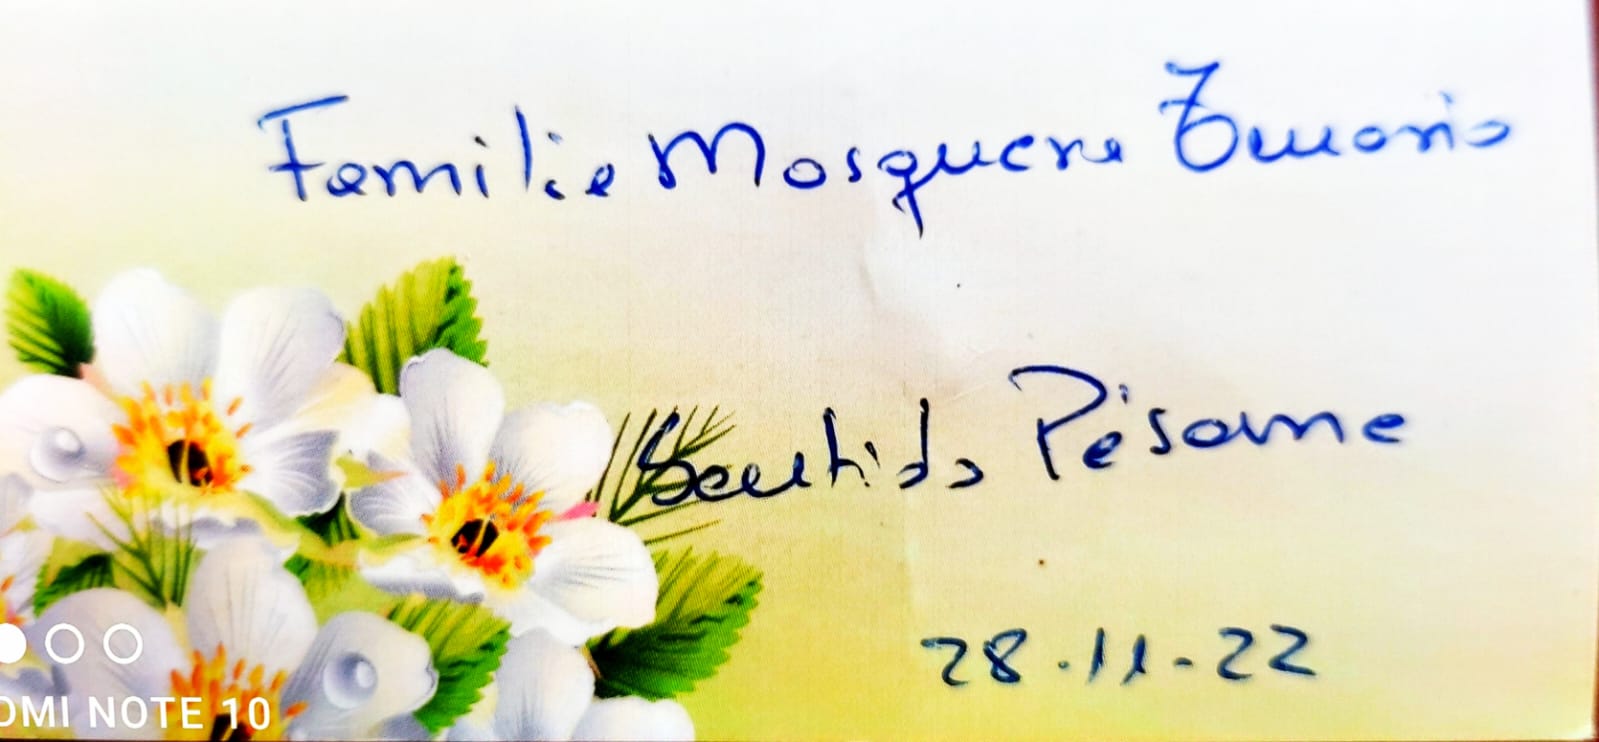 Familia Mosquera Tenorio
Sentido Pésame
28-11-22
OMI NOTE 10